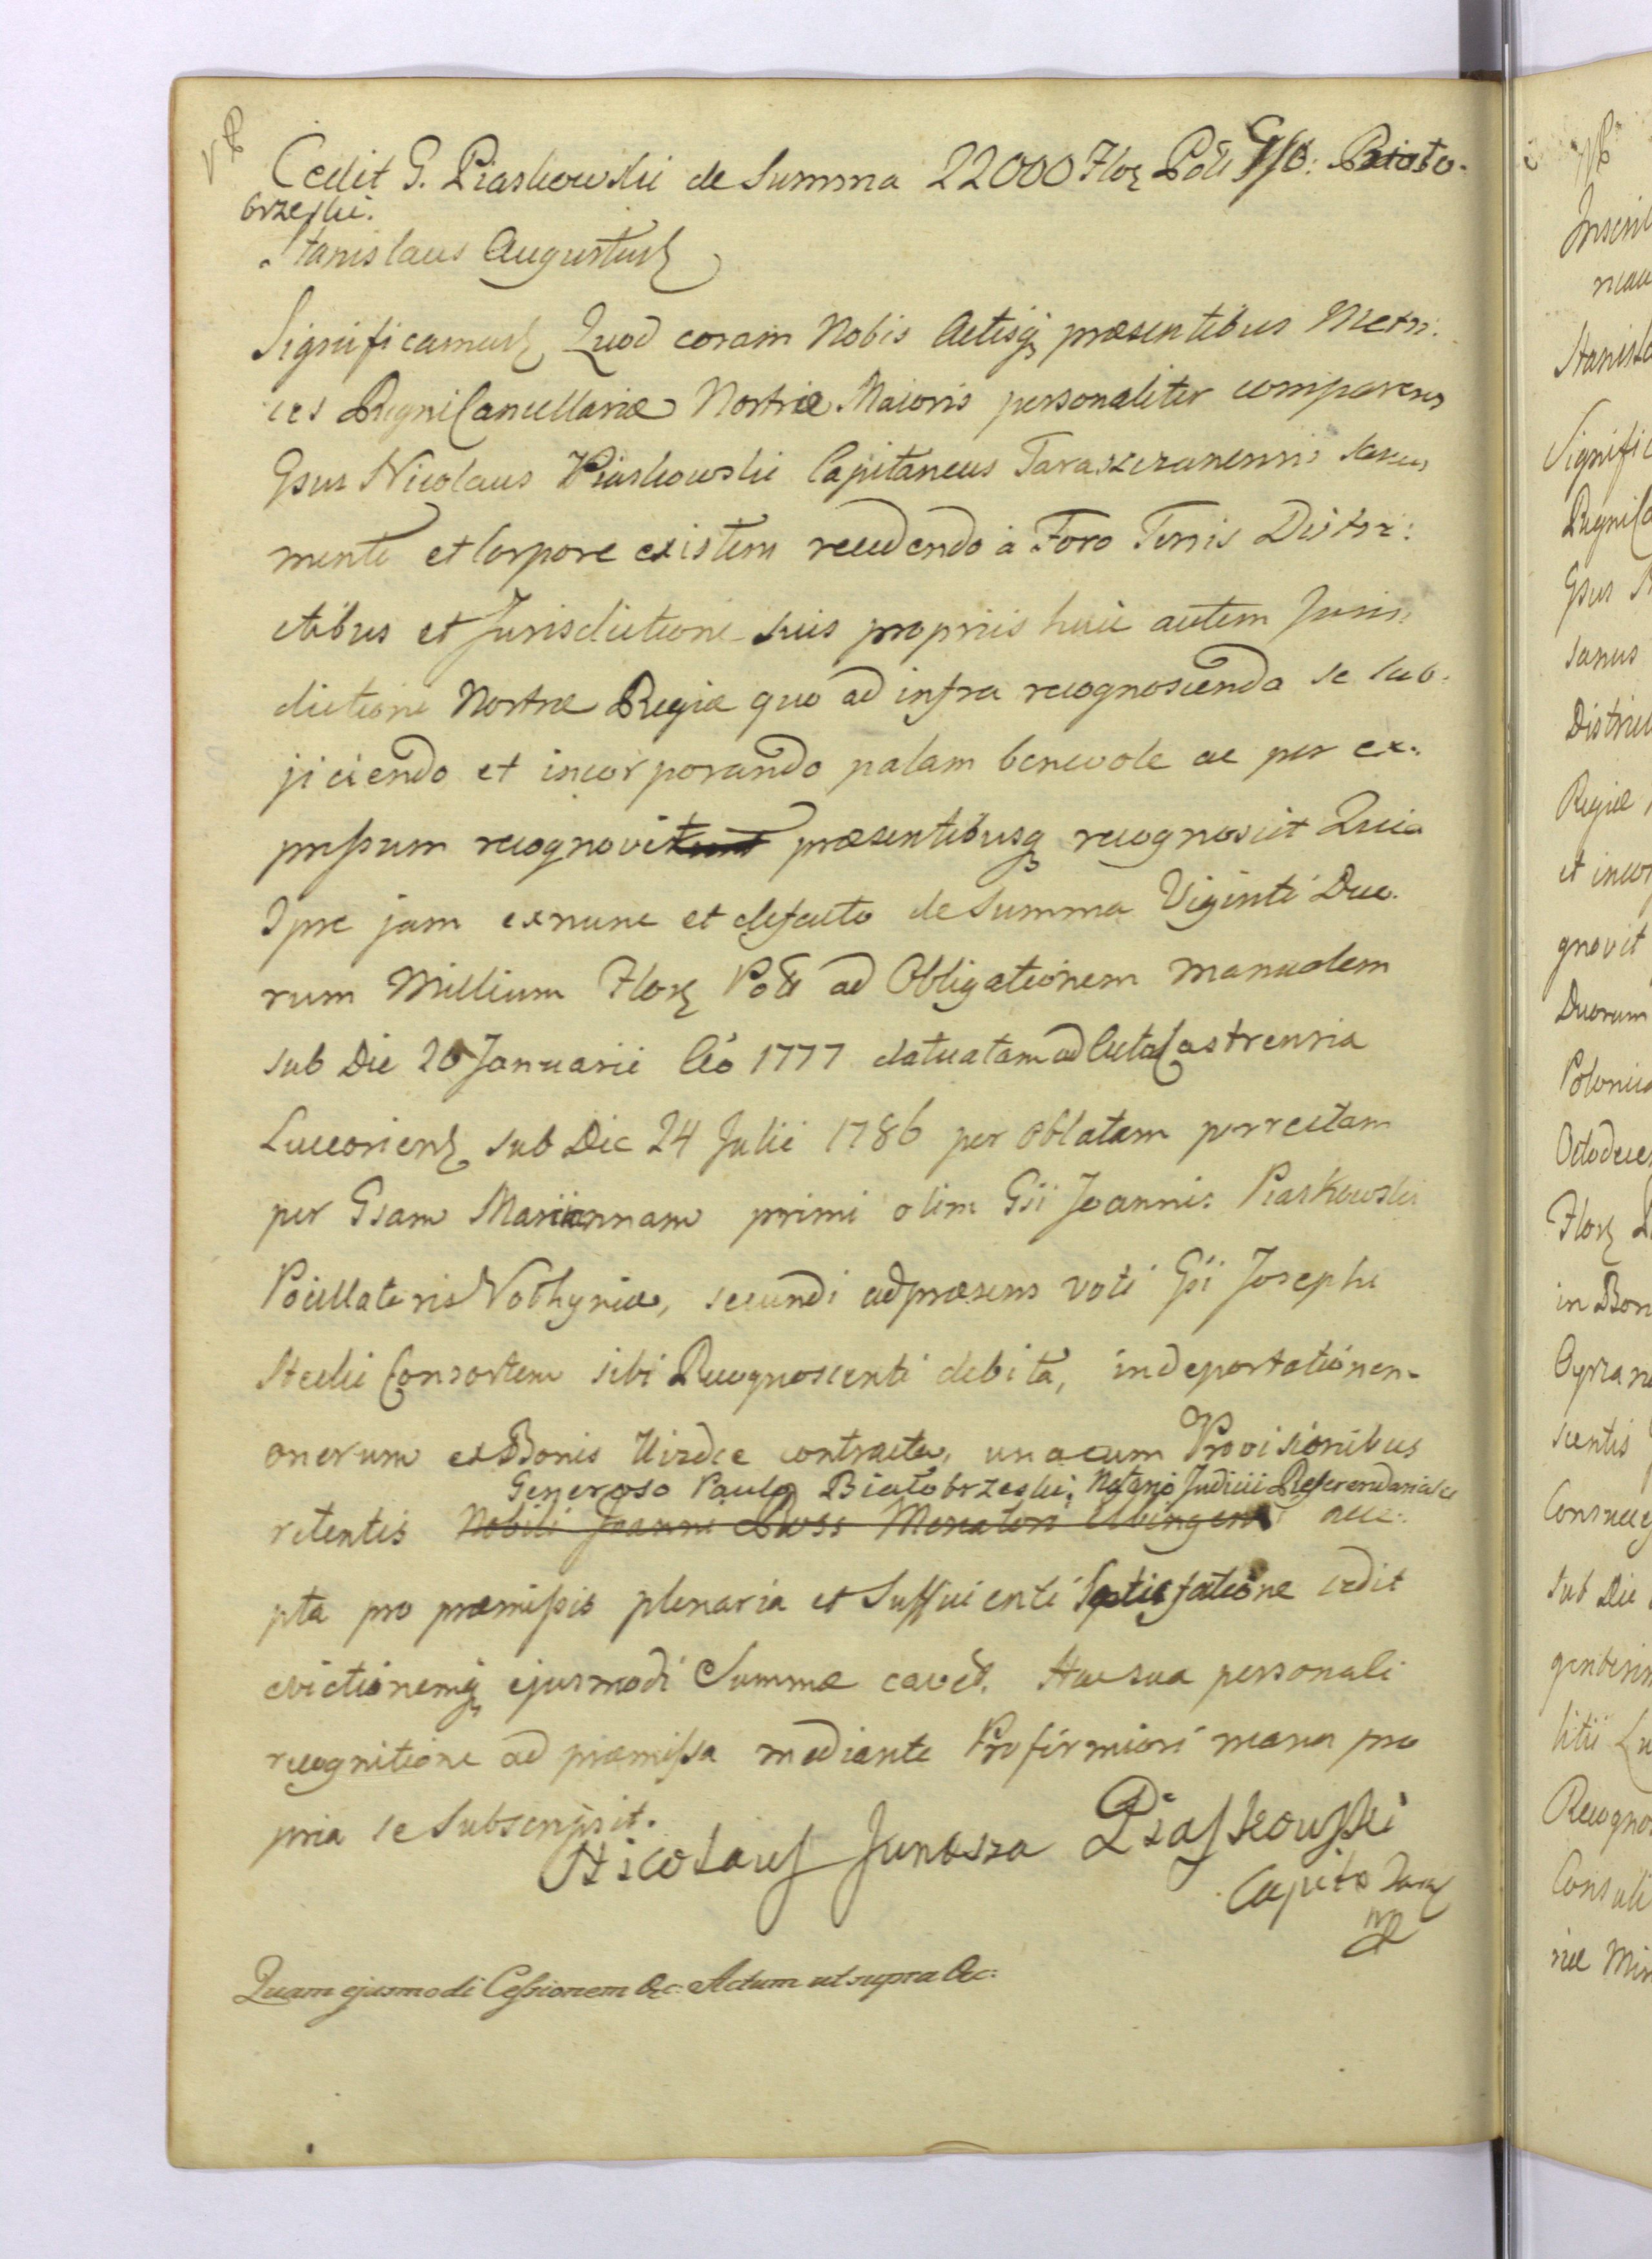 Cedit G. Piaskowski de Summa 22000 Flor Poll Gso: Biało-
brzeski.
Stanislaus Augustus
Significamus Quod coram Nobis Actisq præsentibus Metri:
ces Regni Cancellariæ Nostræ Maioris personaliter comparens
Gsus Nicolaus Piaskowski Capitaneus Taraszczanensis sanus
mente et Corpore existens recedendo à Foro Terris Distri:
ctibus et Jurisdictione suis propriis huic autem Juris
dictioni Nostræ Regiæ quo ad infra recognoscenda se sub-
jiciendo et incorporando palam benevole ac per ex-
pressum recognovit præsentibusq recognoscit Quia
Ipse jam exnunc et defacto de Summa Viginti Duo-
rum Millium Flor Poll ad Obligationem manualem
sub Die 26 Januarii Aõ 1777 datuatam ad Acta Castrensia
Luceorien sub Die 24 Julii 1786 per Oblatam porrectam
per Gsam Mariannam primi olim Gsi Joannis Piaskowski
Pocillatoris Volhyniæ, secundi adpræsens voti Gsi Josephi
Stecki Consortem sibi Recognoscenti debita, in deportationem
onerum ex Bonis Uizdce contracta, unacum Provisionibus
Generoso Paulo Białobrzeski, Notario Judicii Referendarialis
retentis Nobili Joanni Buss Mercatori Elbingensi acce-
pta pro præmissis plenaria et Sufficienti Satisfatione cedit
evictionemq ejusmodi Summæ cavet. Hac sua personali
recognitione ad præmissa mediante Pro firmiori manu pro
pria se Subscripsit.
Nicolaus Junosza Piaskowski
Capita Tarasz
mp
Quam ejusmodi Cessionem &c: Actum ut supra &c: